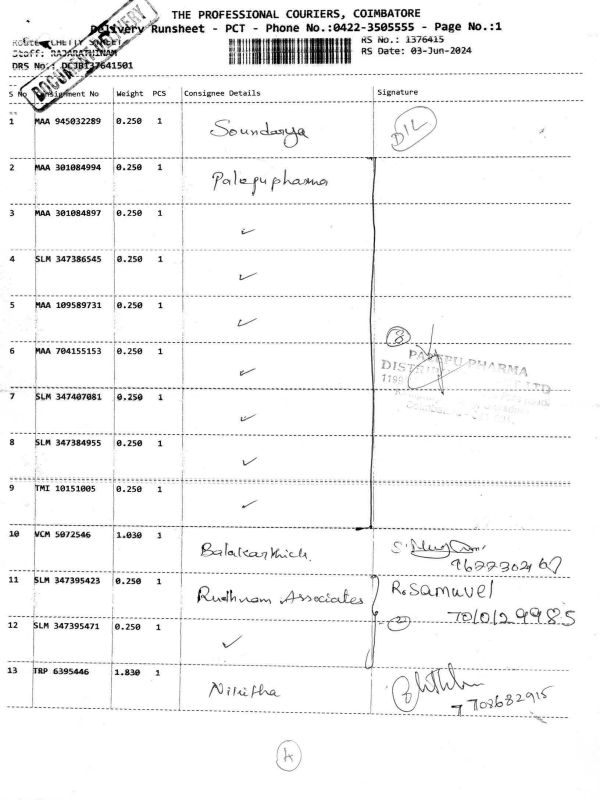 THE PROFESSIONAL COURIERS, COIMBATORE
Delivery Runsheet - PCT - Phone No.:0422-3505555 - Page No.:1
RS No.: 1376415
Staff: RAJARATHINAM RS Date: 03-Jun-2024
DRS No.: DCJBI37641501
DOCUMENT DELIVERY
S No Consignment No Weight PCS Consignee Details Signature
1 MAA 945032289 0.250 1 Soundarya
2 MAA 301084994 0.250 1 Palepu pharma
3 MAA 301084897 0.250 1 ✓
4 SLM 347386545 0.250 1 ✓
5 MAA 109589731 0.250 1 ✓
8
6 MAA 704155153 0.250 1 ✓ PALEPU PHARMA
7 SLM 347407081 0.250 1 ✓
8 SLM 347384955 0.250 1 ✓
9 TMI 10151005 0.250 1 ✓
10 VCM 5072546 1.030 1 Balakarthick
11 SLM 347395423 0.250 1 Rudhnam Associates R. Samuvel
12 SLM 347395471 0.250 1 ✓ 2
13 TRP 6395446 1.830 1 Nikitha
7708682915